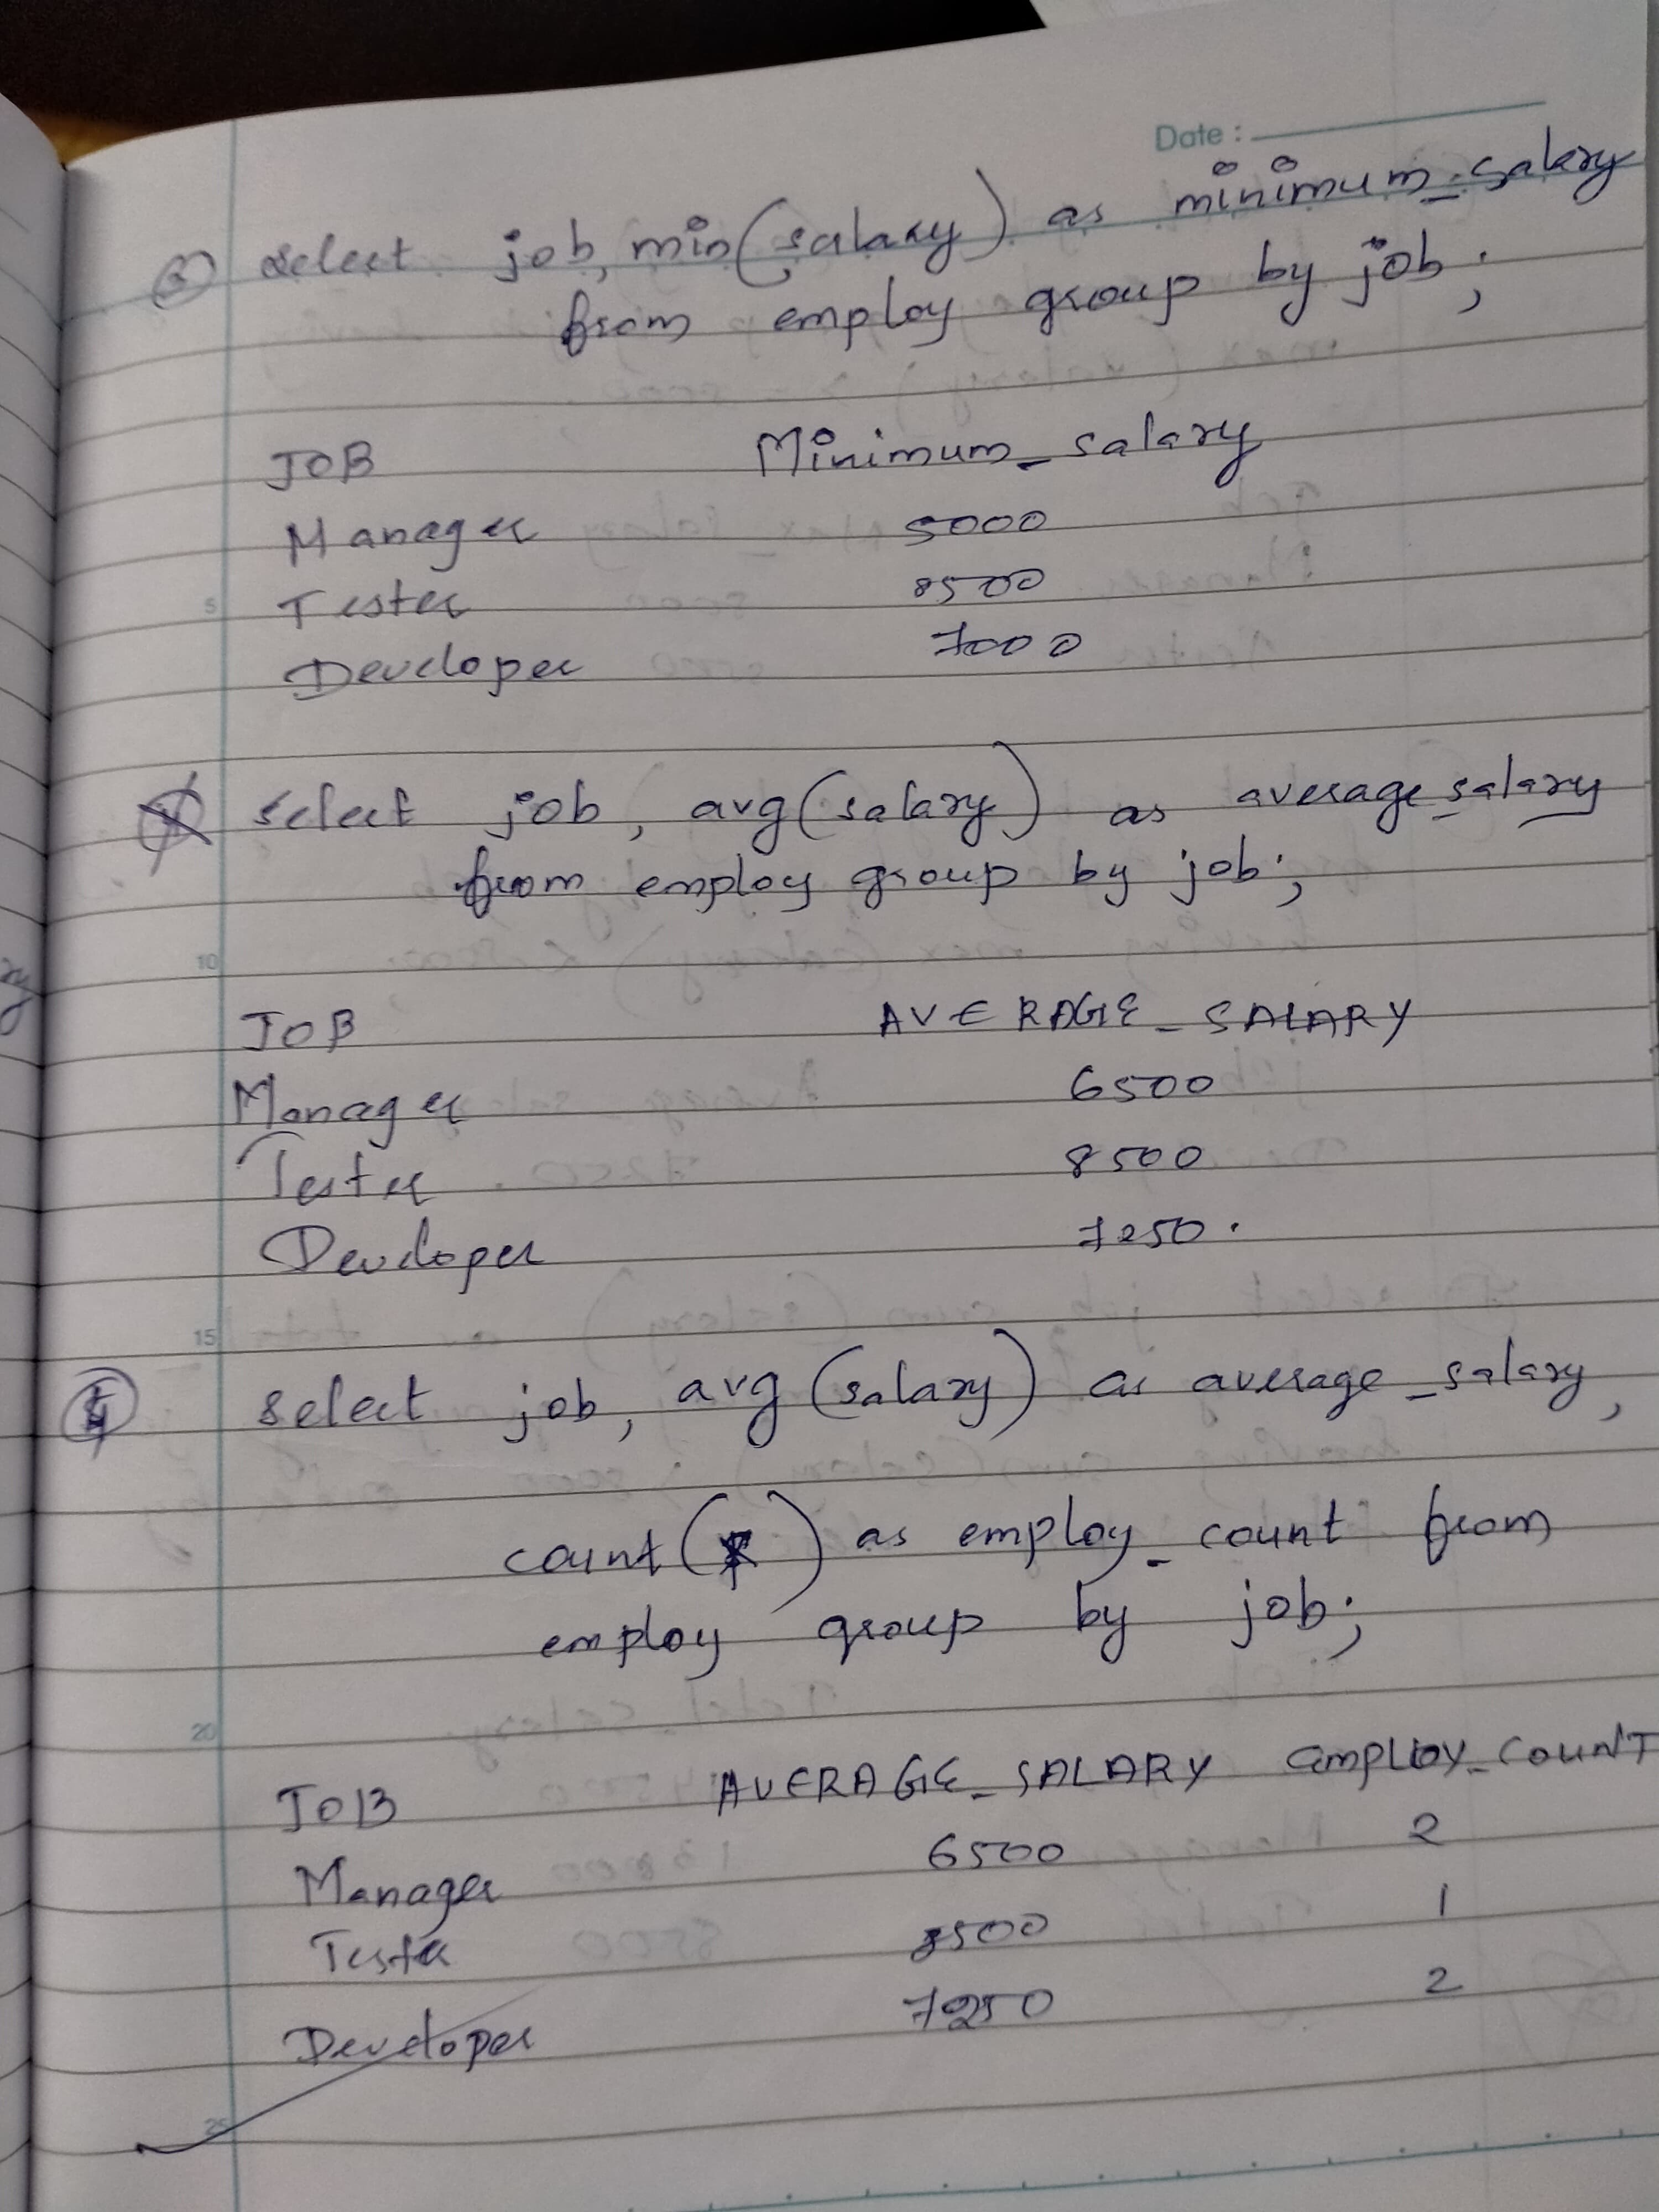 Date :
③ select job, min(salary) as minimum_salary
from employ group by job;
JOB Minimum_salary
Manager 5000
Tester 8500
5
Developer 7000
select job, avg(salary) as average_salary
from employ group by job;
10
JOB AVERAGE_SALARY
Manager 6500
Tester 8500
Developer 7250.
15
select job, avg(salary) as average_salary,
count(*) as employ_count from
employ group by job;
20
JOB AVERAGE_SALARY EMPLOY_COUNT
Manager 6500 2
Tester 8500 1
Developer 7250 2
25